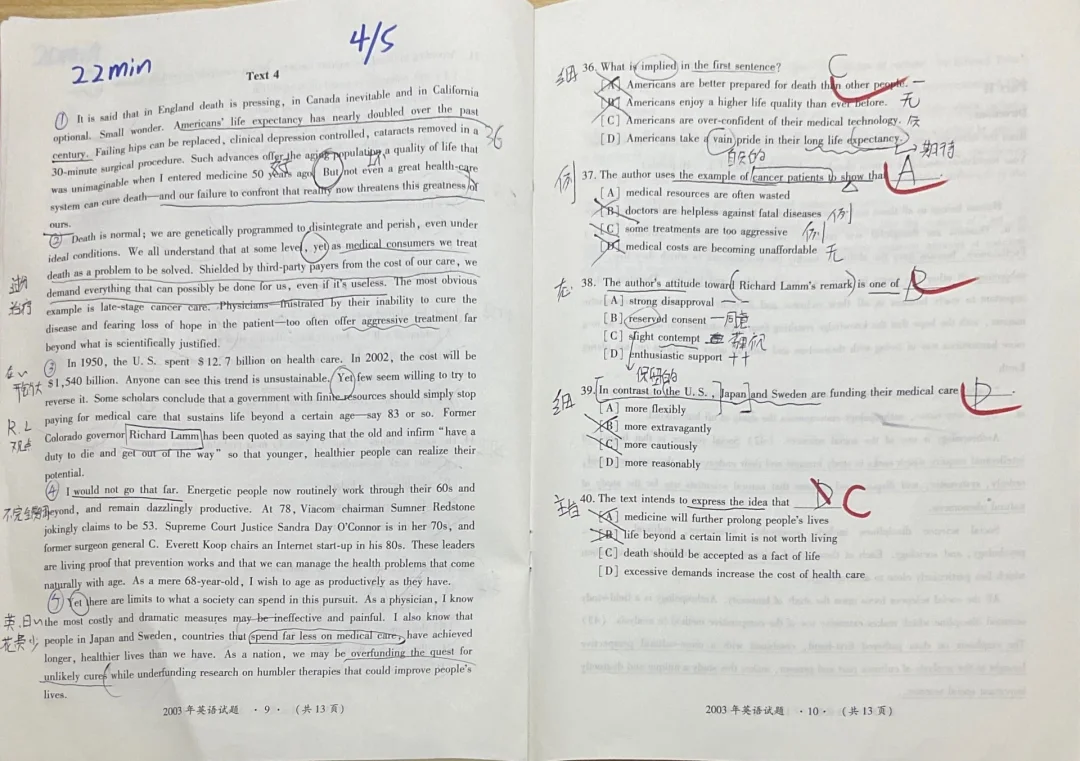 22min
4/5
Text 4
① It is said that in England death is pressing, in Canada inevitable and in California
optional. Small wonder. Americans' life expectancy has nearly doubled over the past
century. Failing hips can be replaced, clinical depression controlled, cataracts removed in a
30-minute surgical procedure. Such advances offer the aging population a quality of life that
was unimaginable when I entered medicine 50 years ago. But not even a great health-care
system can cure death—and our failure to confront that reality now threatens this greatness of
ours.
② Death is normal; we are genetically programmed to disintegrate and perish, even under
ideal conditions. We all understand that at some level, yet as medical consumers we treat
death as a problem to be solved. Shielded by third-party payers from the cost of our care, we
demand everything that can possibly be done for us, even if it's useless. The most obvious
example is late-stage cancer care. Physicians—frustrated by their inability to cure the
disease and fearing loss of hope in the patient—too often offer aggressive treatment far
beyond what is scientifically justified.
治疗
③ In 1950, the U. S. spent $ 12. 7 billion on health care. In 2002, the cost will be
$1,540 billion. Anyone can see this trend is unsustainable. Yet few seem willing to try to
reverse it. Some scholars conclude that a government with finite resources should simply stop
paying for medical care that sustains life beyond a certain age—say 83 or so. Former
Colorado governor Richard Lamm has been quoted as saying that the old and infirm "have a
duty to die and get out of the way" so that younger, healthier people can realize their
potential.
R. L
观点
④ I would not go that far. Energetic people now routinely work through their 60s and
beyond, and remain dazzlingly productive. At 78, Viacom chairman Sumner Redstone
jokingly claims to be 53. Supreme Court Justice Sandra Day O'Connor is in her 70s, and
former surgeon general C. Everett Koop chairs an Internet start-up in his 80s. These leaders
are living proof that prevention works and that we can manage the health problems that come
naturally with age. As a mere 68-year-old, I wish to age as productively as they have.
⑤ Yet there are limits to what a society can spend in this pursuit. As a physician, I know
the most costly and dramatic measures may be ineffective and painful. I also know that
people in Japan and Sweden, countries that spend far less on medical care, have achieved
longer, healthier lives than we have. As a nation, we may be overfunding the quest for
unlikely cures while underfunding research on humbler therapies that could improve people's
lives.
花费少
36
2003 年英语试题 · 9 · (共 13 页)
细 36. What is implied in the first sentence? C
[A] Americans are better prepared for death than other people.
[B] Americans enjoy a higher life quality than ever before. 无
[C] Americans are over-confident of their medical technology.
[D] Americans take a vain pride in their long life expectancy. 期待
自负的
例 37. The author uses the example of cancer patients to show that A.
[A] medical resources are often wasted
[B] doctors are helpless against fatal diseases 例
[C] some treatments are too aggressive 例
[D] medical costs are becoming unaffordable 无
38. The author's attitude toward Richard Lamm's remark is one of B.
[A] strong disapproval — —
[B] reserved consent
[C] slight contempt
[D] enthusiastic support + +
保留的
细 39. In contrast to the U. S. , Japan and Sweden are funding their medical care D.
[A] more flexibly
[B] more extravagantly
[C] more cautiously
[D] more reasonably
主旨 40. The text intends to express the idea that D C
[A] medicine will further prolong people's lives
[B] life beyond a certain limit is not worth living
[C] death should be accepted as a fact of life
[D] excessive demands increase the cost of health care
2003 年英语试题 · 10 · (共 13 页)